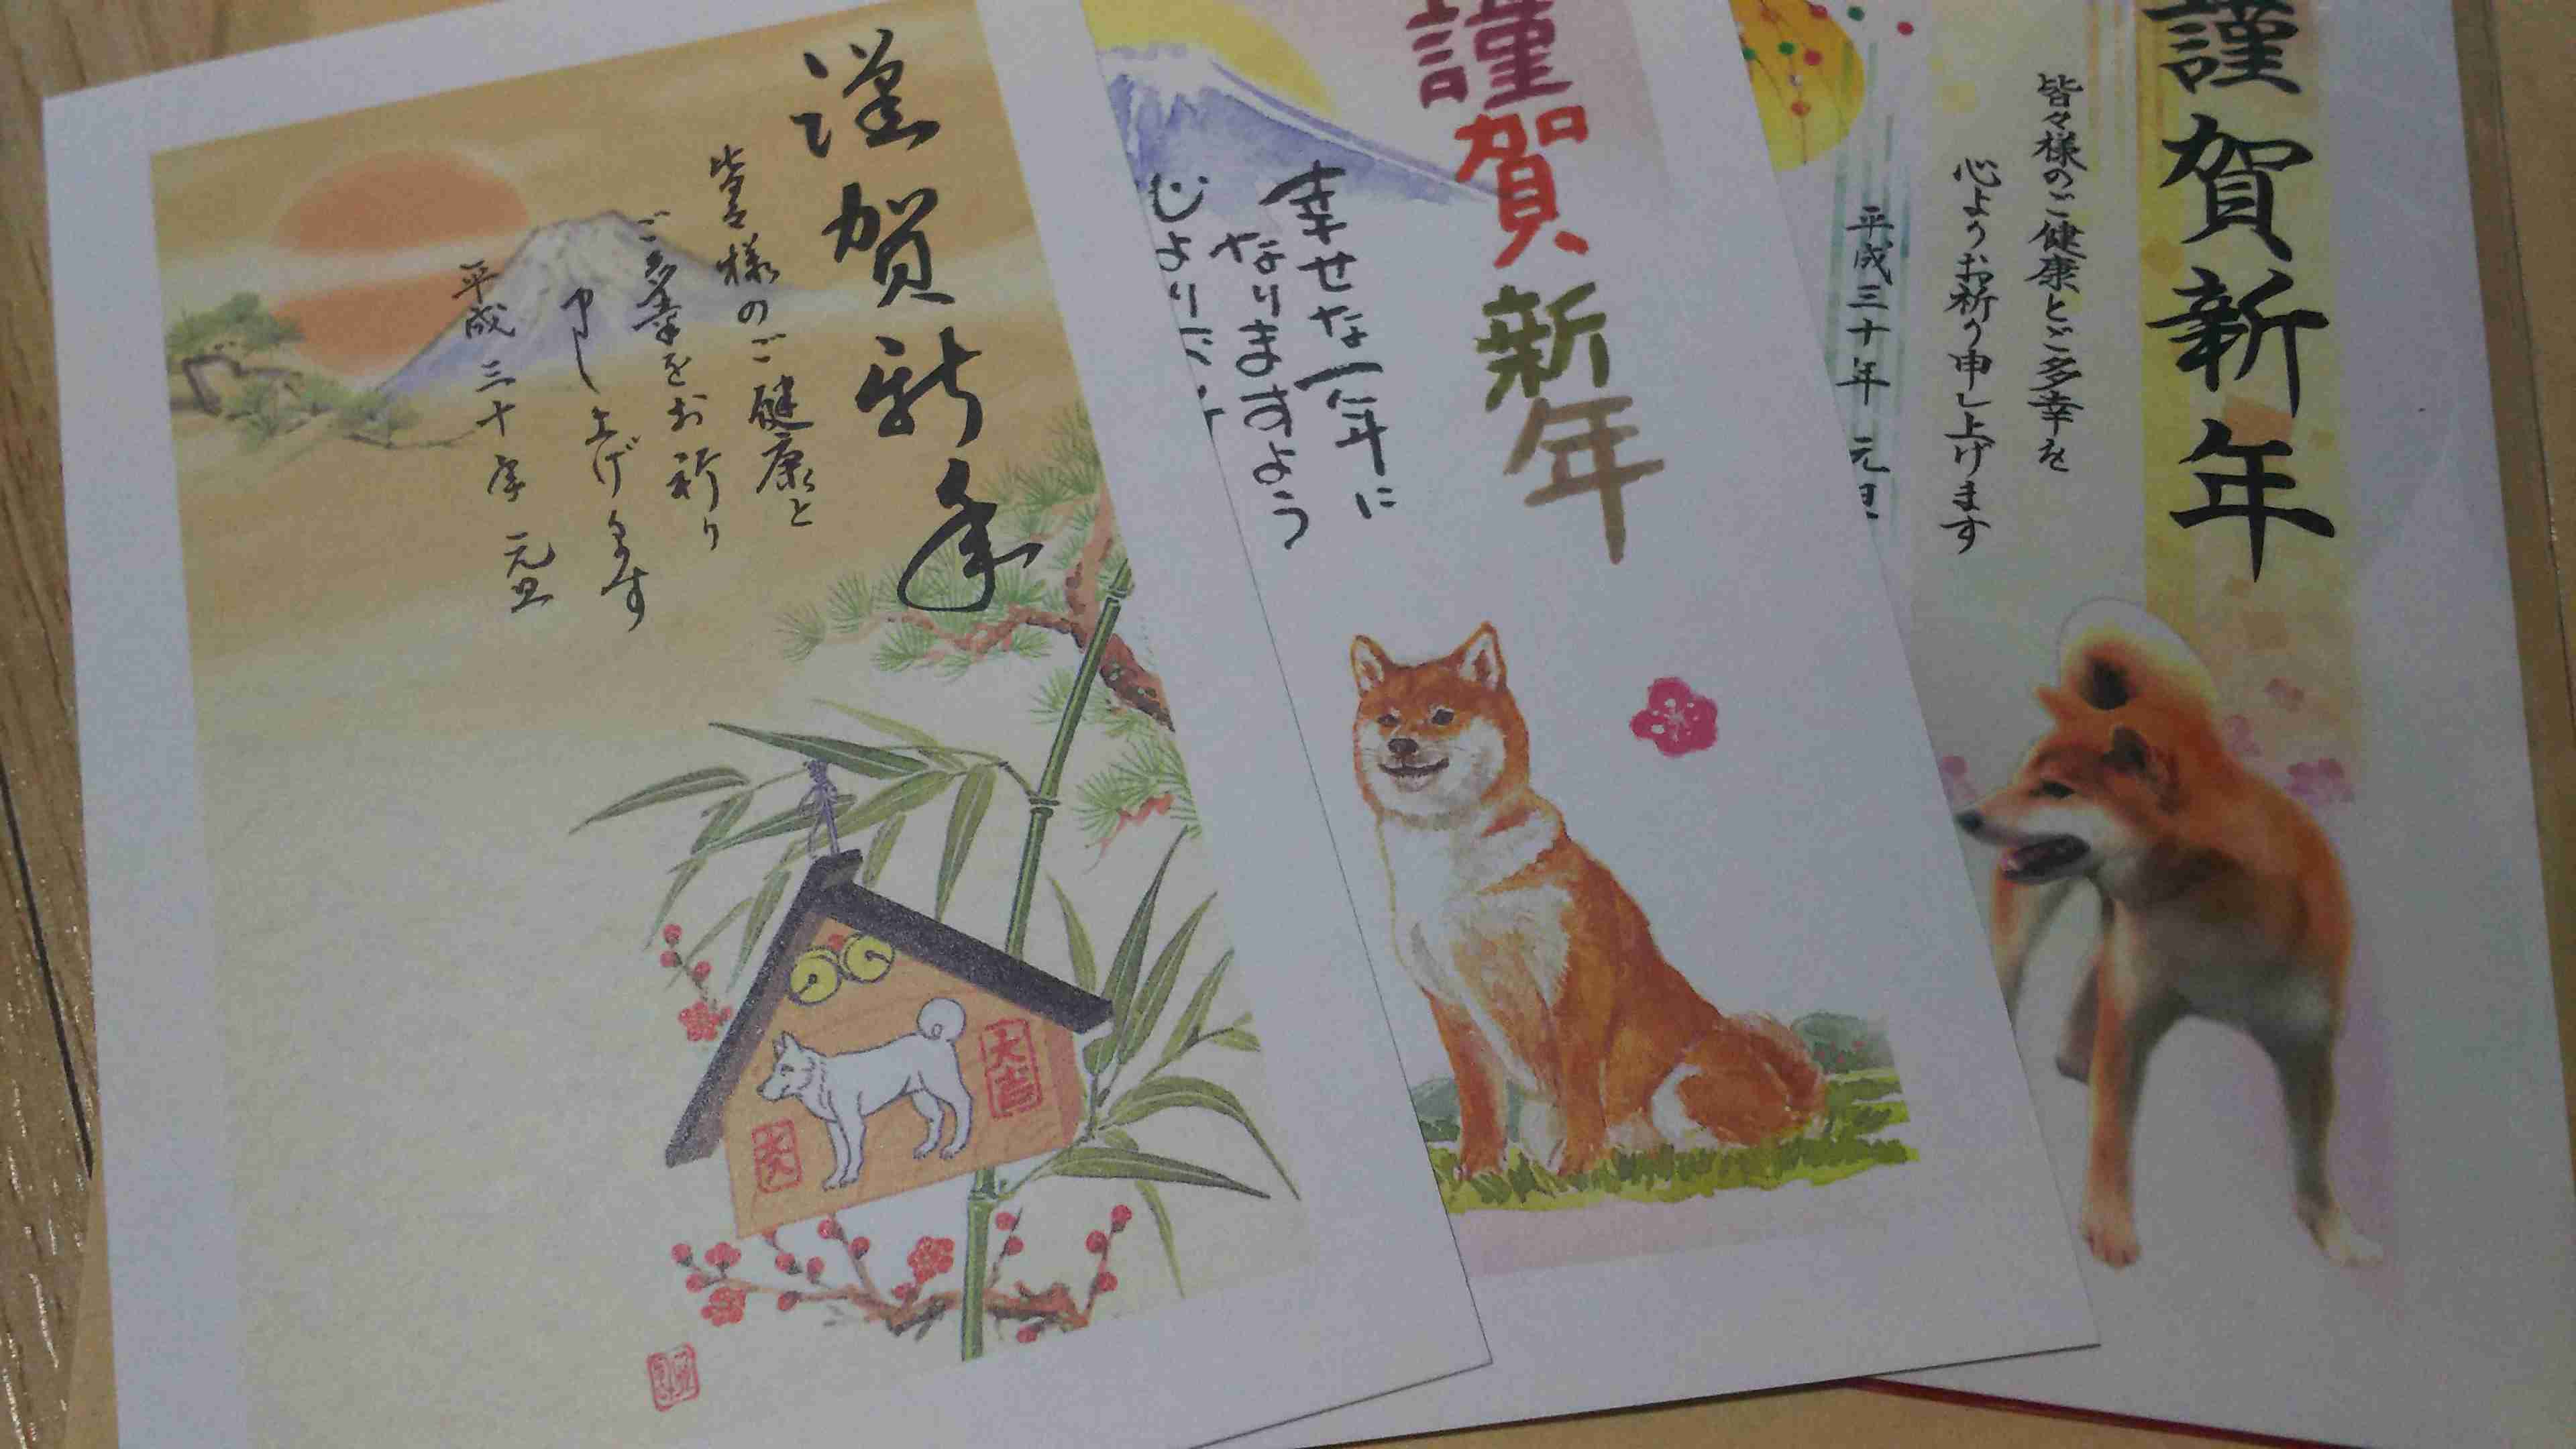 謹賀新年
皆々様のご健康と
ご多幸をお祈り
申し上げます
平成三十年 元旦
大吉
謹賀新年
幸せな一年に
なりますよう
心より
謹賀新年
皆々様のご健康とご多幸を
心よりお祈り申し上げます
平成三十年 元旦